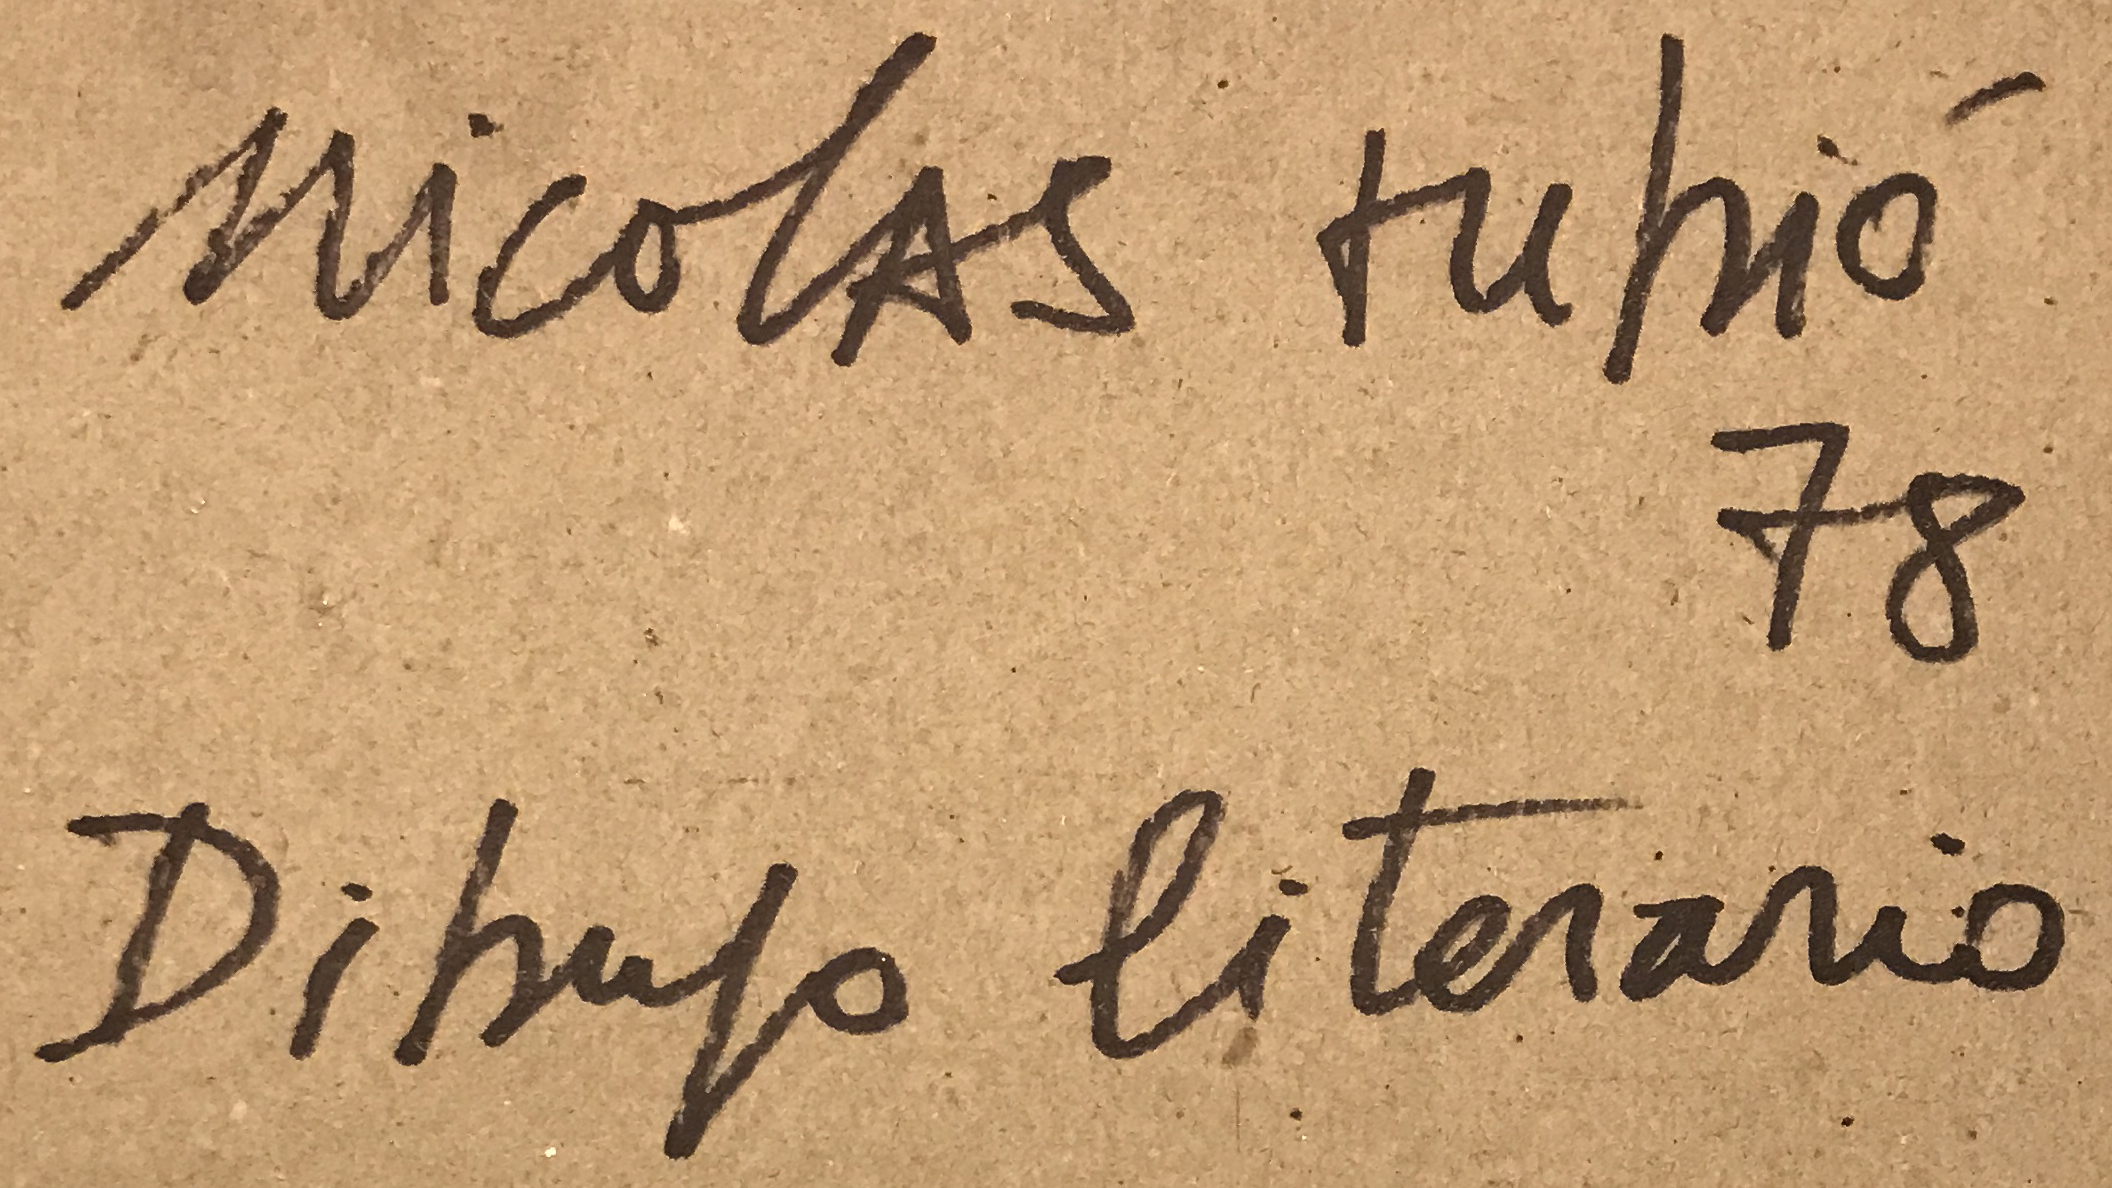 Nicolas rubió
78
Dibujo literario